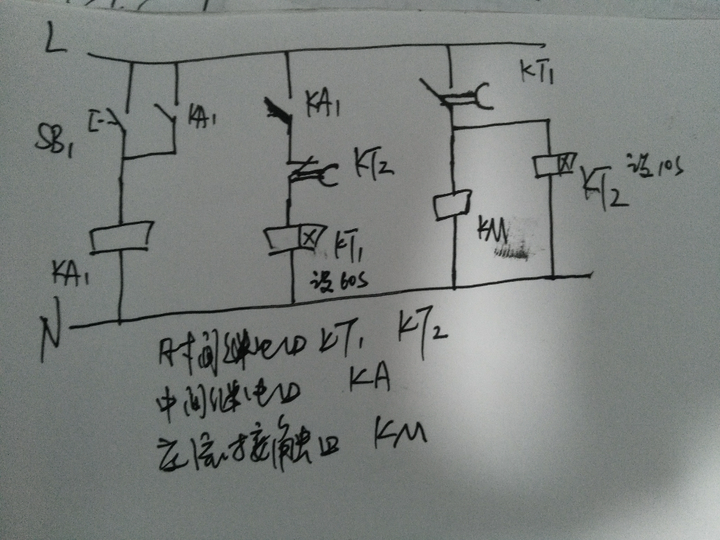 L
SB₁
KA₁
KA₁
KT₁
KT₂
KT₂ 设10s
KM
KA₁
KT₁
设60s
N
时间继电口 KT₁ KT₂
中间继电口 KA
交流接触口 KM